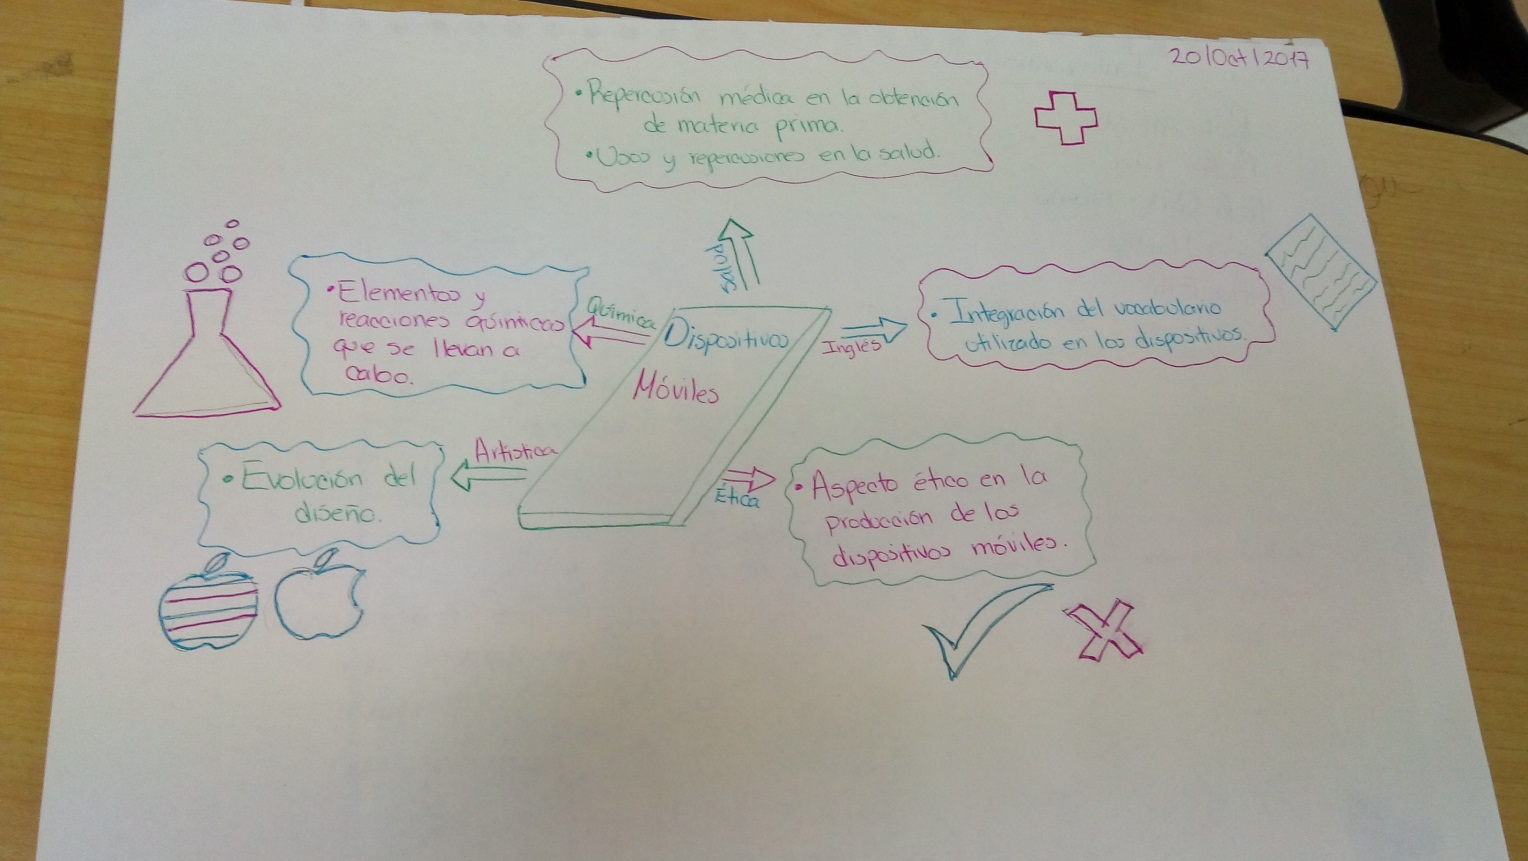 20/Oct/2017
• Repercusión médica en la obtención
de materia prima.
• Usos y repercusiones en la salud.
Salud
• Elementos y
reacciones químicas
que se llevan a
cabo.
Química
Dispositivos
Móviles
Inglés
• Integración del vocabulario
utilizado en los dispositivos.
Artística
• Evolución del
diseño.
Ética
• Aspecto ético en la
producción de los
dispositivos móviles.